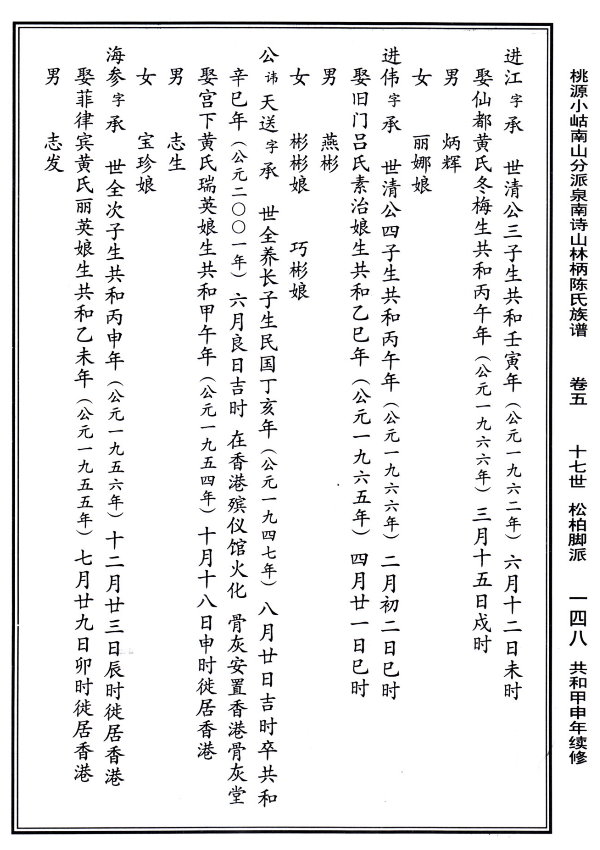 桃源小岵南山分派泉南诗山林柄陈氏族谱 卷五 十七世 松柏脚派 一四八 共和甲申年续修
进江字承 世清公三子生共和壬寅年（公元一九六二年）六月十二日未时
娶仙都黄氏冬梅生共和丙午年（公元一九六六年）三月十五日戍时
男 炳辉
女 丽娜娘
进伟字承 世清公四子生共和丙午年（公元一九六六年）二月初二日巳时
娶旧门吕氏素治娘生共和乙巳年（公元一九六五年）四月廿一日巳时
男 燕彬
女 彬彬娘 巧彬娘
公讳天送字承 世全养长子生民国丁亥年（公元一九四七年）八月廿日吉时卒共和
辛巳年（公元二〇〇一年）六月良日吉时 在香港殡仪馆火化 骨灰安置香港骨灰堂
娶宫下黄氏瑞英娘生共和甲午年（公元一九五四年）十月十八日申时徙居香港
男 志生
女 宝珍娘
海参字承 世全次子生共和丙申年（公元一九五六年）十二月廿三日辰时徙居香港
娶菲律宾黄氏丽英娘生共和乙未年（公元一九五五年）七月廿九日卯时徙居香港
男 志发